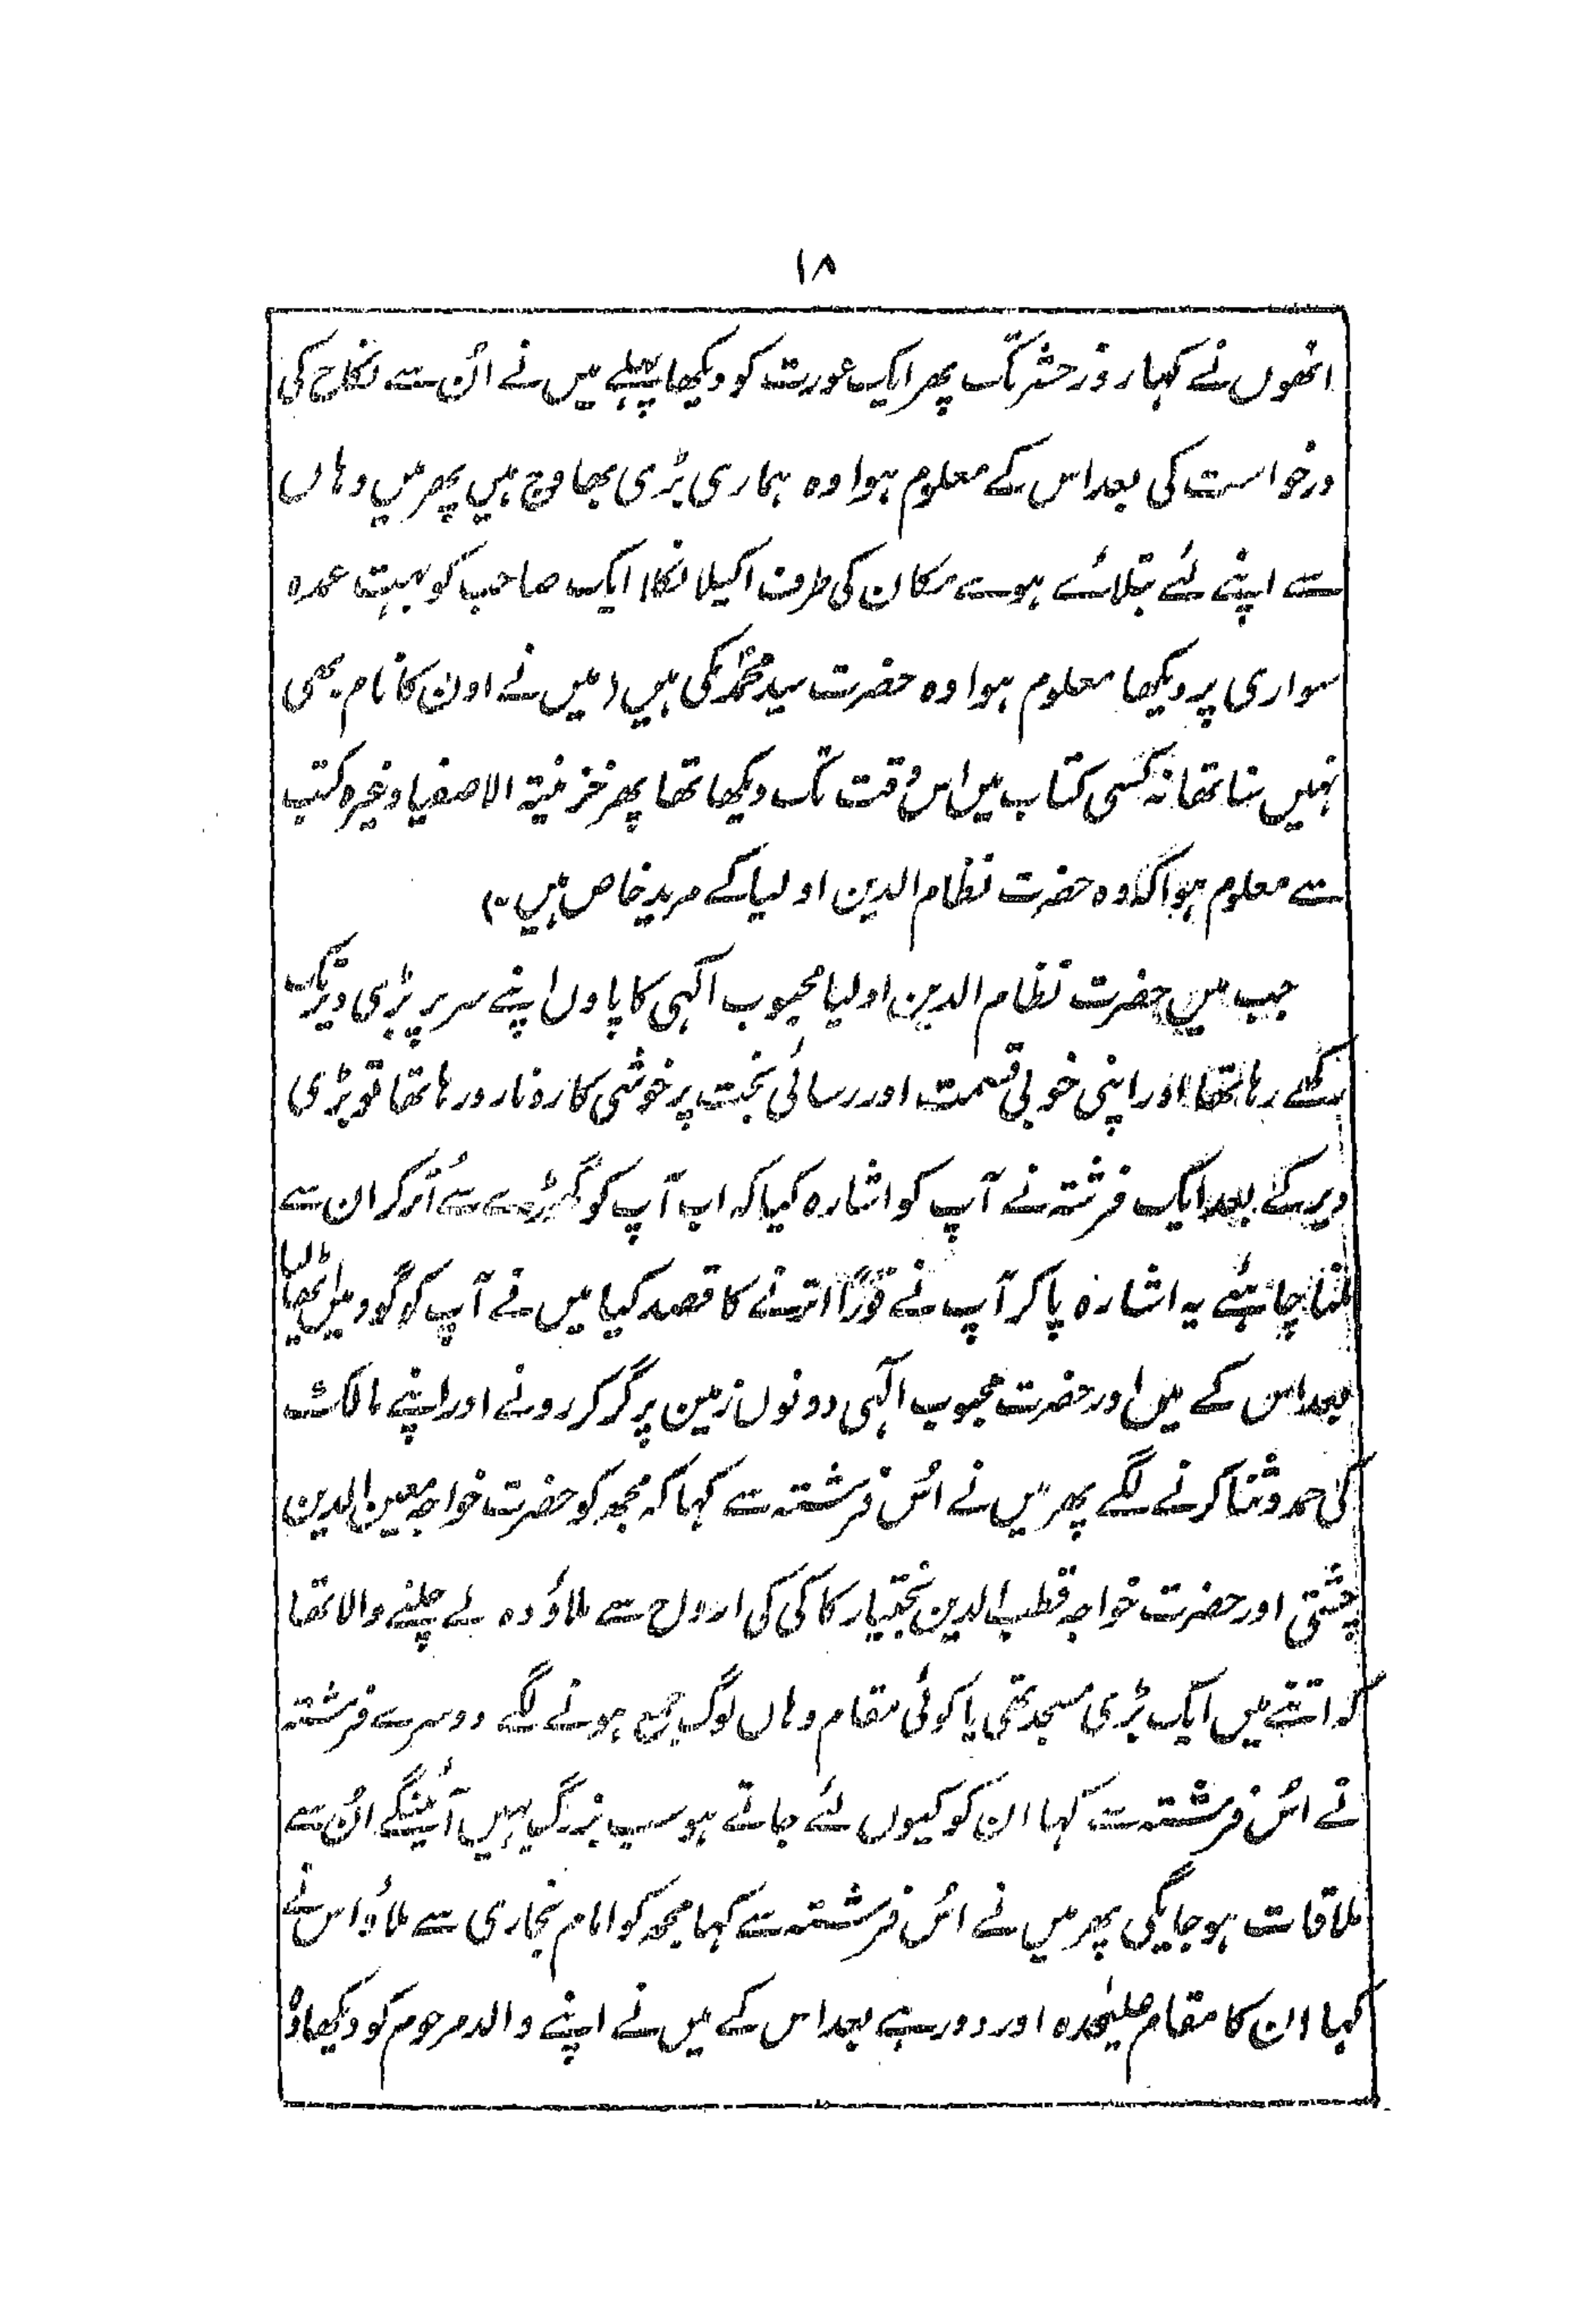 ۱۸
انھوں نے کہا روز حشر تک پھر ایک عورت کو دیکھا پہلے میں نے اُن سے نکاح کی
درخواست کی بعد اس کے معلوم ہوا وہ ہماری بڑی بھاوج ہیں پھر میں وہاں
سے اپنے لئے بتلائے ہوے مکان کی طرف اکیلا نکلا ایک صاحب کو بہت عمدہ
سواری پر دیکھا معلوم ہوا وہ حضرت سید محمدؐ مکی ہیں (میں نے اون کا نام بھی
نہیں سنا تھا نہ کسی کتاب میں اس وقت تک دیکھا تھا پھر خزینۃ الاصفیا وغیرہ کتب
سے معلوم ہوا کہ وہ حضرت نظام الدین اولیا کے مرید خاص ہیں۔)
جب میں حضرت نظام الدین اولیا محبوب الٰہی کا پاوں اپنے سر پر بڑی دیر تک
رکھے رہا تھا اور اپنی خوبی قسمت اور رسائی بخت پر خوشی کا رونا رو رہا تھا تو بڑی
دیر کے بعد ایک فرشتہ نے آپ کو اشارہ کیا کہ اب آپ کو گھوڑے سے اُتر کر ان سے
ملنا چاہئے یہ اشارہ پا کر آپ نے فوراً اترنے کا قصد کیا میں نے آپ کو گود میں اٹھا لیا
بعد اس کے میں اور حضرت محبوب الٰہی دونوں زمین پر گر کر رونے اور اپنے مالک
کی حمد و ثنا کرنے لگے پھر میں نے اُس فرشتہ سے کہا کہ مجھ کو حضرت خواجہ معین الدین
چشتی اور حضرت خواجہ قطب الدین بختیار کاکی کی ارواح سے ملاؤ وہ لے چلنے والا تھا
کہ اتنے میں ایک بڑی مسجد تھی یا کوئی مقام وہاں لوگ جمع ہونے لگے دوسرے فرشتہ
نے اُس فرشتہ سے کہا ان کو کیوں لئے جاتے ہو سب بزرگ یہیں آئینگے اُن سے
ملاقات ہو جایگی پھر میں نے اُس فرشتہ سے کہا مجھ کو امام بخاری سے ملاؤ اس نے
کہا ان کا مقام علیٰحدہ اور دور ہے بعد اس کے میں نے اپنے والد مرحوم کو دیکھا